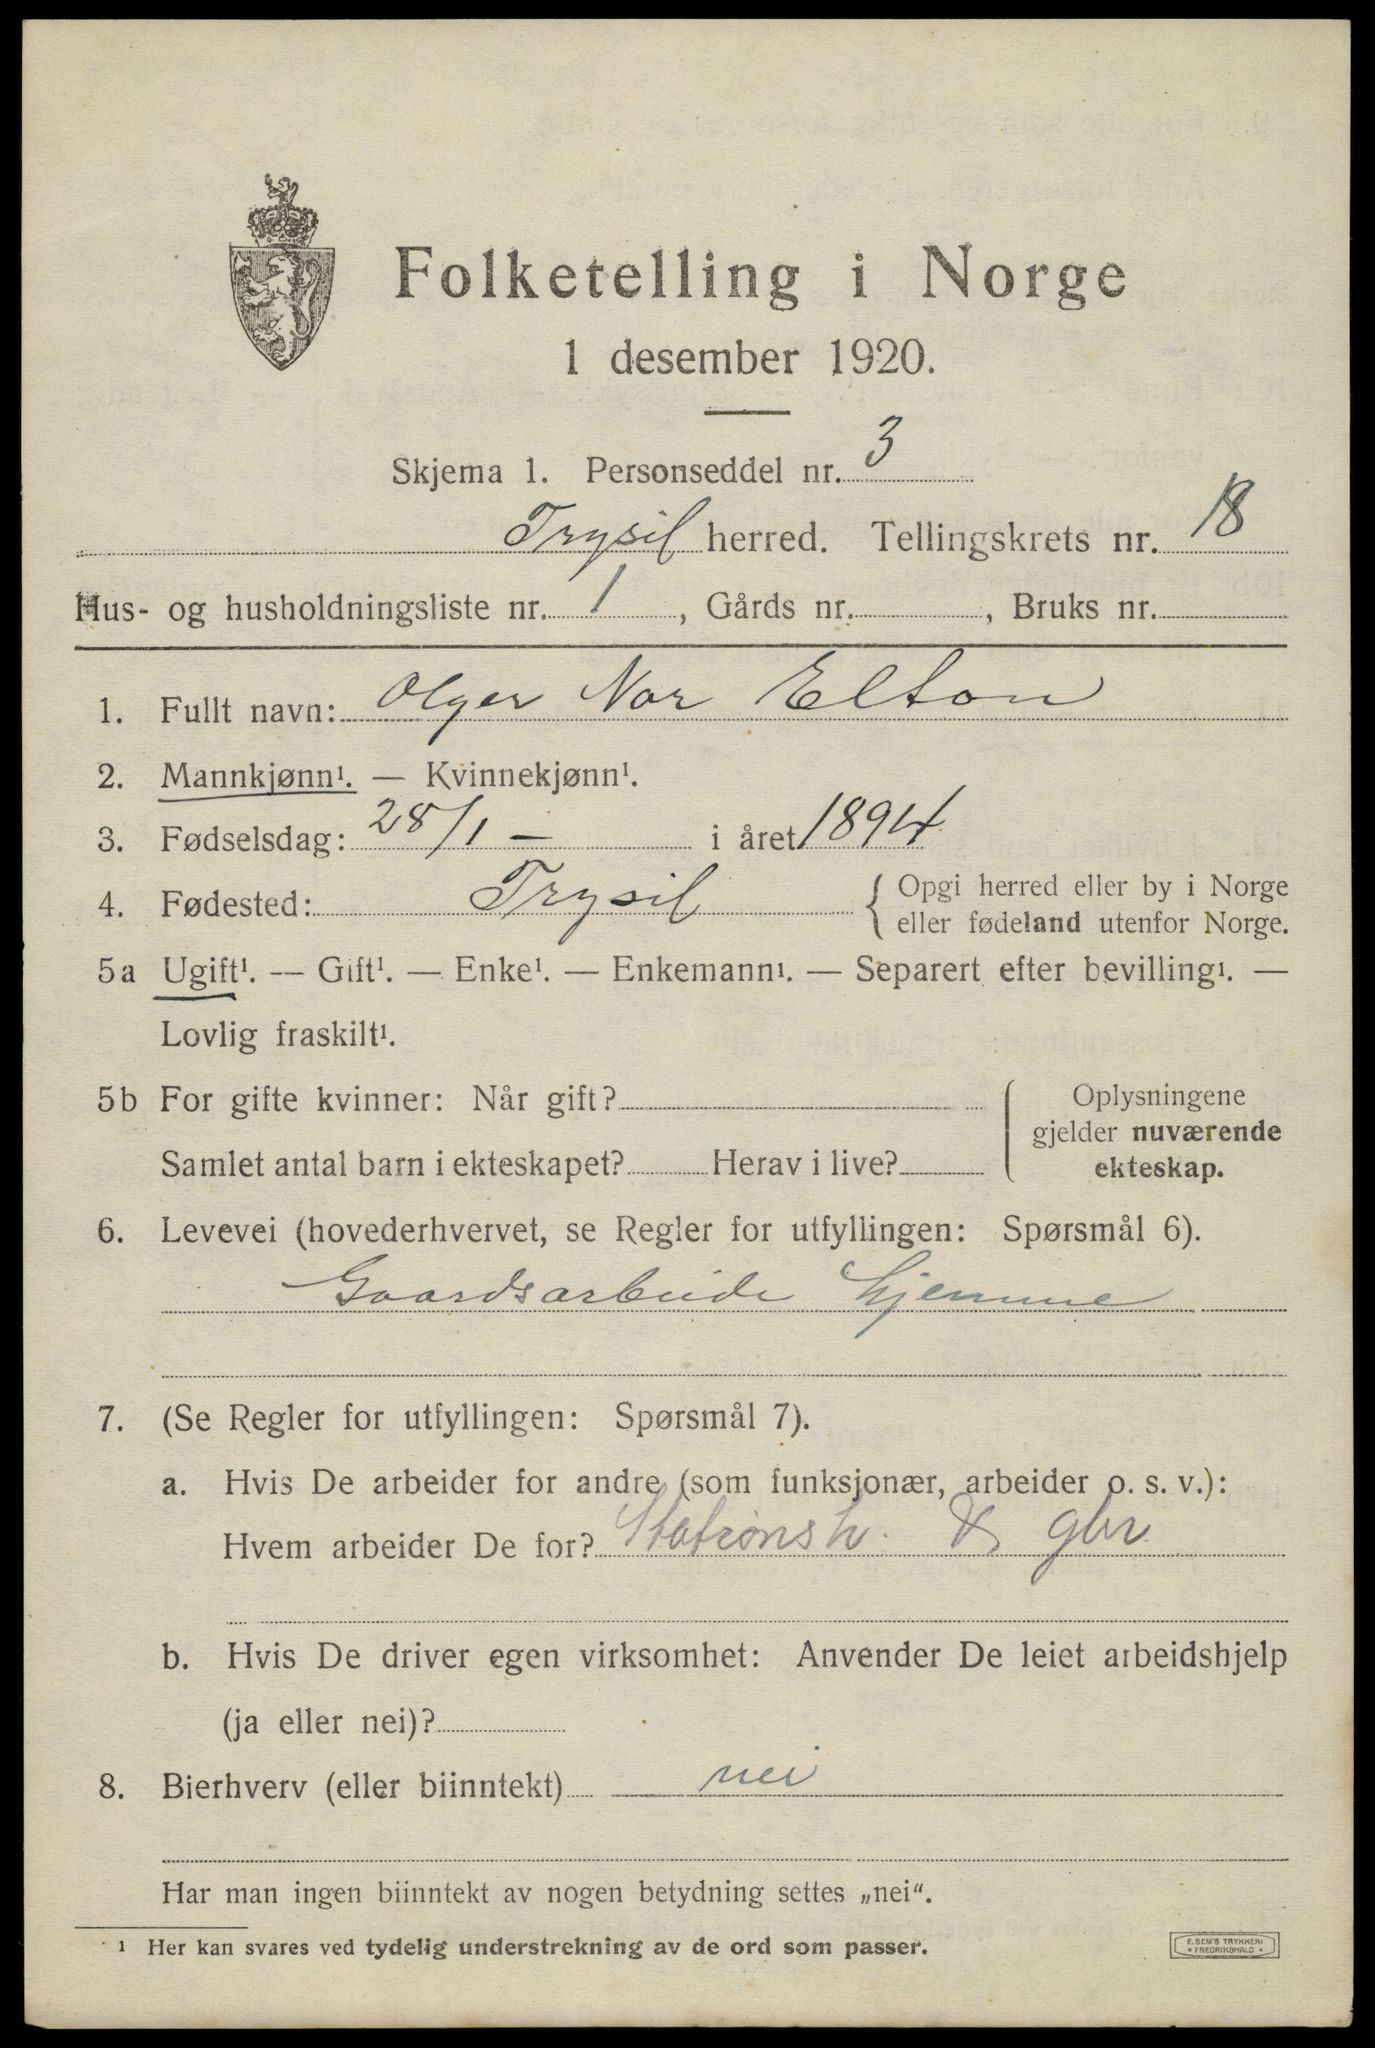 Folketelling i Norge
1 desember 1920.
Skjema 1. Personseddel nr. 3
Trysil herred. Tellingskrets nr. 18
Hus- og husholdningsliste nr. 1, Gårds nr. , Bruks nr.
1. Fullt navn: Olger Nor Elton
2. Mannkjønn¹. — Kvinnekjønn¹.
3. Fødselsdag: 28/1 - i året 1894
4. Fødested: Trysil { Opgi herred eller by i Norge
eller fødeland utenfor Norge.
5a Ugift¹. — Gift¹. — Enke¹. — Enkemann¹. — Separert efter bevilling¹. —
Lovlig fraskilt¹.
5b For gifte kvinner: Når gift? Oplysningene
gjelder nuværende
Samlet antal barn i ekteskapet? Herav i live? ekteskap.
6. Levevei (hovederhvervet, se Regler for utfyllingen: Spørsmål 6).
Gaardsarbeide hjemme
7. (Se Regler for utfyllingen: Spørsmål 7).
a. Hvis De arbeider for andre (som funksjonær, arbeider o. s. v.):
Hvem arbeider De for? Stationsh. & gbr
b. Hvis De driver egen virksomhet: Anvender De leiet arbeidshjelp
(ja eller nei)?
8. Bierhverv (eller biinntekt) nei
Har man ingen biinntekt av nogen betydning settes „nei“.
¹ Her kan svares ved tydelig understrekning av de ord som passer.
E. SEM'S TRYKKERI
* FREDRIKSHALD *